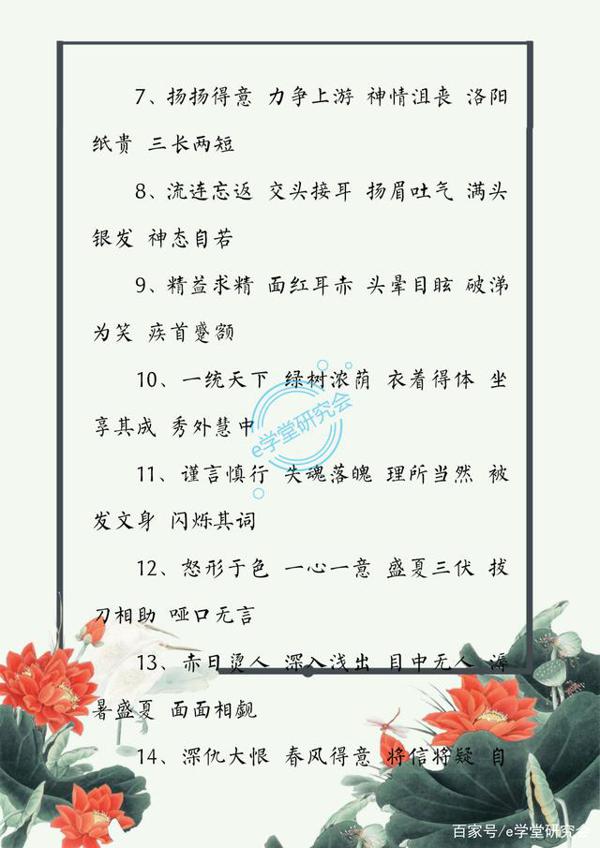 7、扬扬得意 力争上游 神情沮丧 洛阳
纸贵 三长两短
8、流连忘返 交头接耳 扬眉吐气 满头
银发 神态自若
9、精益求精 面红耳赤 头晕目眩 破涕
为笑 疾首蹙额
10、一统天下 绿树浓荫 衣着得体 坐
享其成 秀外慧中
e学堂研究会
11、谨言慎行 失魂落魄 理所当然 被
发文身 闪烁其词
12、怒形于色 一心一意 盛夏三伏 拔
刀相助 哑口无言
13、赤日烫人 深入浅出 目中无人 溽
暑盛夏 面面相觑
14、深仇大恨 春风得意 将信将疑 自
百家号/e学堂研究会